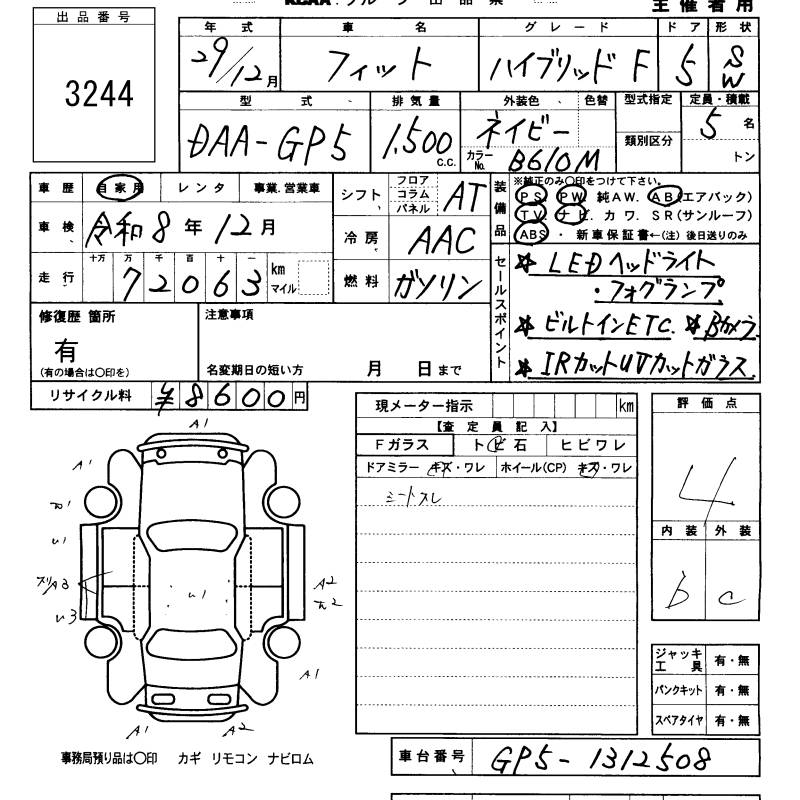 出品番号
3244
主催者用
年式 車名 グレード ドア 形状
29/12月 フィット ハイブリッドF 5 SW
型式 排気量 外装色 色替 型式指定 定員・積載
DAA-GP5 1,500 C.C. ネイビー 類別区分 5名
カラーNo. B610M トン
車歴 自家用 レンタ 事業.営業車
シフト フロア コラム パネル AT
装備品 ※純正のみ〇印をつけて下さい。
PS PW 純AW. AB(エアバック)
TV ナビ. カワ. SR(サンルーフ)
ABS ・ 新車保証書←(注)後日送りのみ
車検 令和8年12月
冷房 AAC
走行 十万 万 千 百 十 一
72063 km マイル
燃料 ガソリン
セールスポイント
☆LEDヘッドライト
・フォグランプ
☆ビルトインETC. ☆Bカメラ
☆IRカットUVカットガラス
修復歴 箇所
有
(有の場合は〇印を)
注意事項
名変期日の短い方 月 日まで
リサイクル料 ¥8600円
現メーター指示 km
【査定員記入】
Fガラス トビ石 ヒビワレ
ドアミラー キズ・ワレ ホイール(CP) キズ・ワレ
シートスレ
評価点
4
内装 外装
b c
A1
A1
U1
A3
U3
U1
A2
A1
A1
A2
ジャッキ工具 有・無
パンクキット 有・無
スペアタイヤ 有・無
事務局預り品は〇印 カギ リモコン ナビロム
車台番号 GP5-1312508